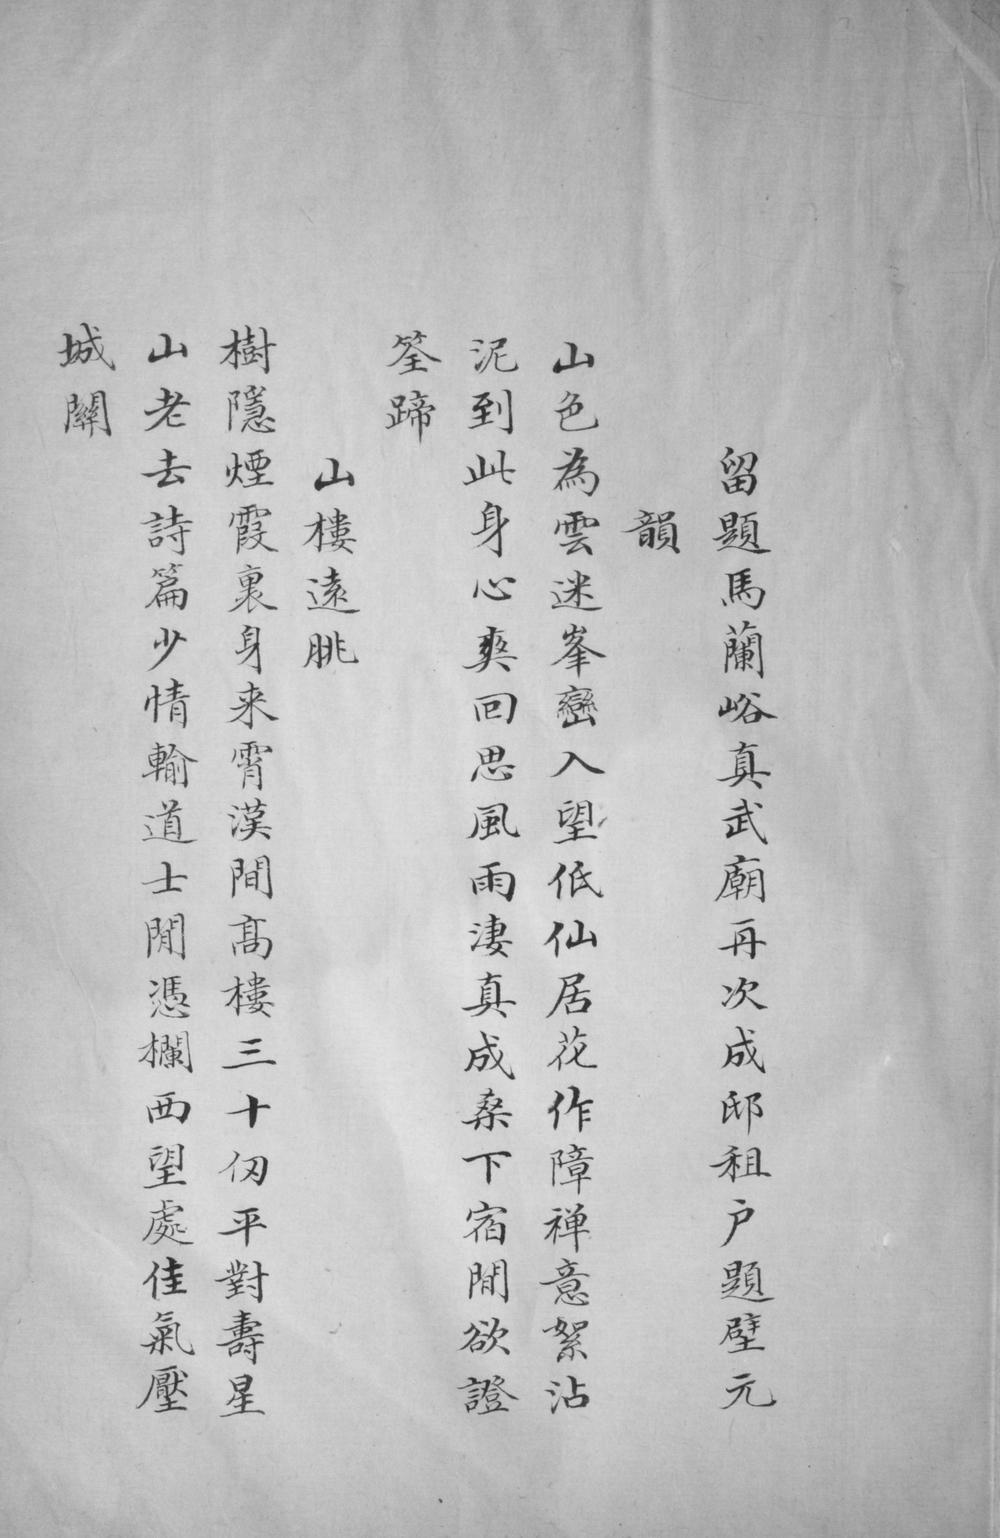 留題馬蘭峪真武廟再次成邸租戶題壁元
韻
山色為雲迷峯巒入望低仙居花作障禅意絮沾
泥到此身心爽回思風雨淒真成桒下宿閒欲證
筌蹄
山樓遠眺
樹隱煙霞裏身来霄漢間髙樓三十仭平對壽星
山老去詩篇少情輸道士閒憑欄西望處佳氣壓
城關